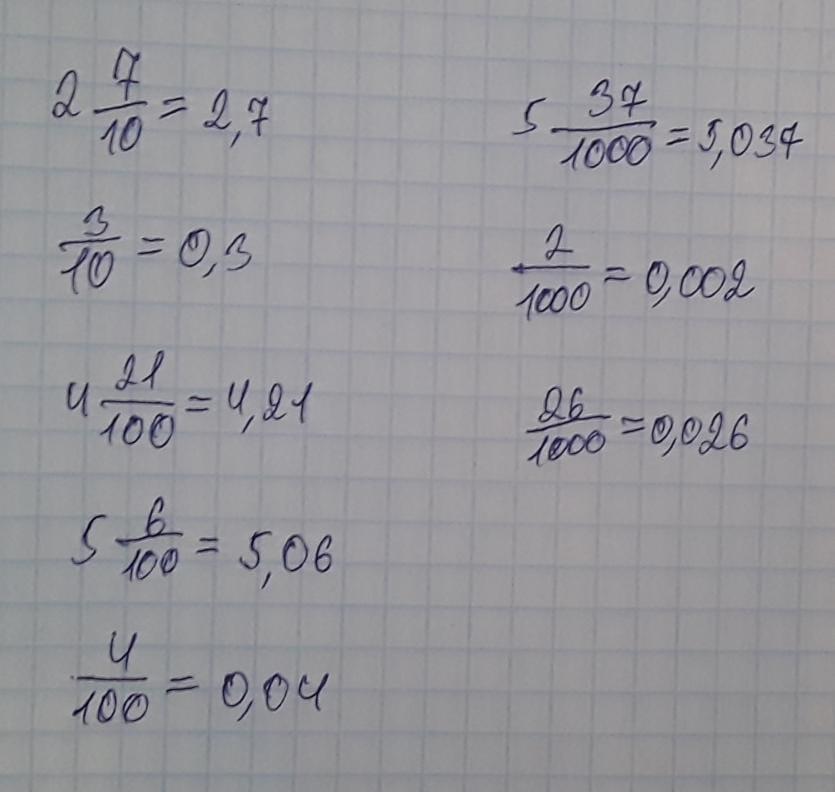 2 7/10 = 2,7
3/10 = 0,3
4 21/100 = 4,21
5 6/100 = 5,06
4/100 = 0,04
5 37/1000 = 5,037
2/1000 = 0,002
26/1000 = 0,026